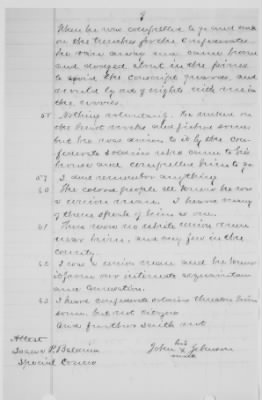 8
When he was compelled to go and work
on the trenches for the Confederates
he ran away and came home
and dodged about in the pines
to avoid the conscript guards, and
would lay at nights with me in
the woods.
55 Nothing voluntarily. He worked on
the breast works and fished some
but he was driven to it by the con-
federate soldiers who came to his
house and compelled him to go
57 I dont remember anything
60 The colored people all knew he was
a union man. I heard many
of them speak of him as one.
61 There were no white union men
near him, and very few in the
county.
62 I was a union man and he knew
it from our intimate acquaintance
and conversation.
63 I heard confederate soldiers threaten him
some, but not citizens
And further saith not
Attest
his
John X Johnson
mark
Isaac P. Baldwin
Special Comr